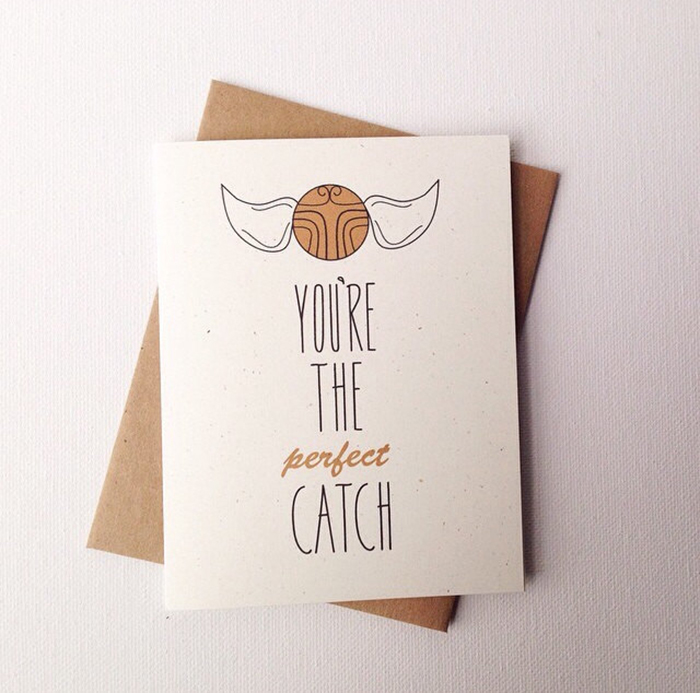 YOU'RE
THE
perfect
CATCH